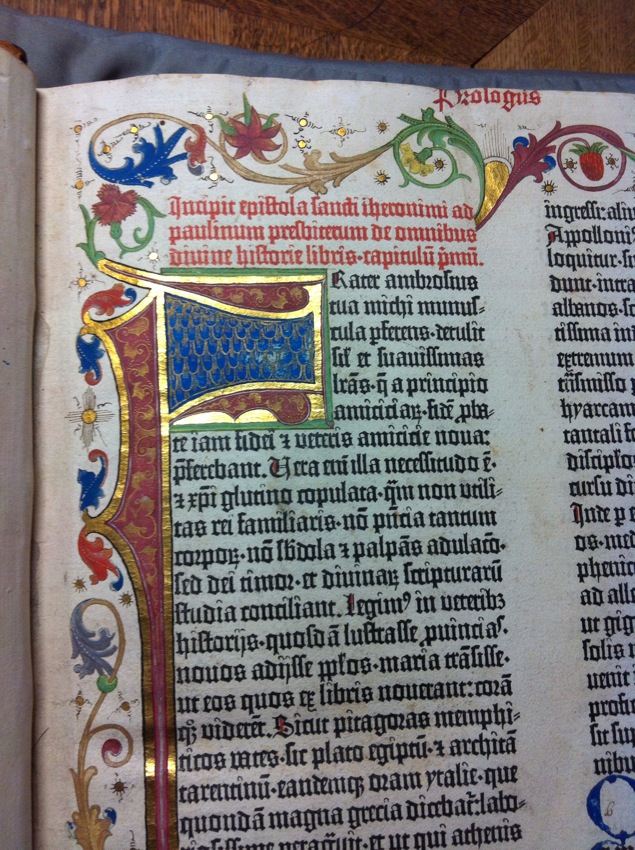 Prologus
Incipit epistola sancti iheronimi ad
paulinum presbiterum de omnibus
divine historie libris · capitulū p̄mū.
Rater ambrosius
tua michi munus⸗
cula ꝑferens · detulit
sil̄ et suavissimas
lr̄as · q̄ a principio
amicicia⁊ · fidē ꝓba⸗
te iam fidei ⁊ veteris amicicie noua:
p̄ferebant. Uera eni̅ illa necessitudo ē ·
⁊ xp̄i glutino copulata · q̄m non utili⸗
tas rei familiaris · nō pn̄cia tantum
corpoꝝ · nō sb̄dola ⁊ palpās adulacō ·
sed dei timor · et divinaꝝ scripturarū
studia conciliant. Legimꝰ in veteribꝫ
historijs · quosdā lustrasse ꝓuincias ·
nouos adijsse ppl̄os · maria trāsisse ·
ut eos quos ex libris nouerant: corā
qꝫ viderēt. Sicut pitagoras memphi⸗
ticos vates · sic plato egiptū · ⁊ architā
tarentinū · eandemqꝫ oram ytalie · que
quondā magna grecia dicebat̄: labo⸗
riosissime peragravit · et ut qui athenis
ingress
Apolloniꝰ
loquitur
dunt · intra
albanos · s
tissima
extremum
trāsmisso
hyarcam
tantali
discipl
cursu di
Inde p
os · med
phenic
ad alle
ut gig
solis
uenit
profic
sic sup
nibu